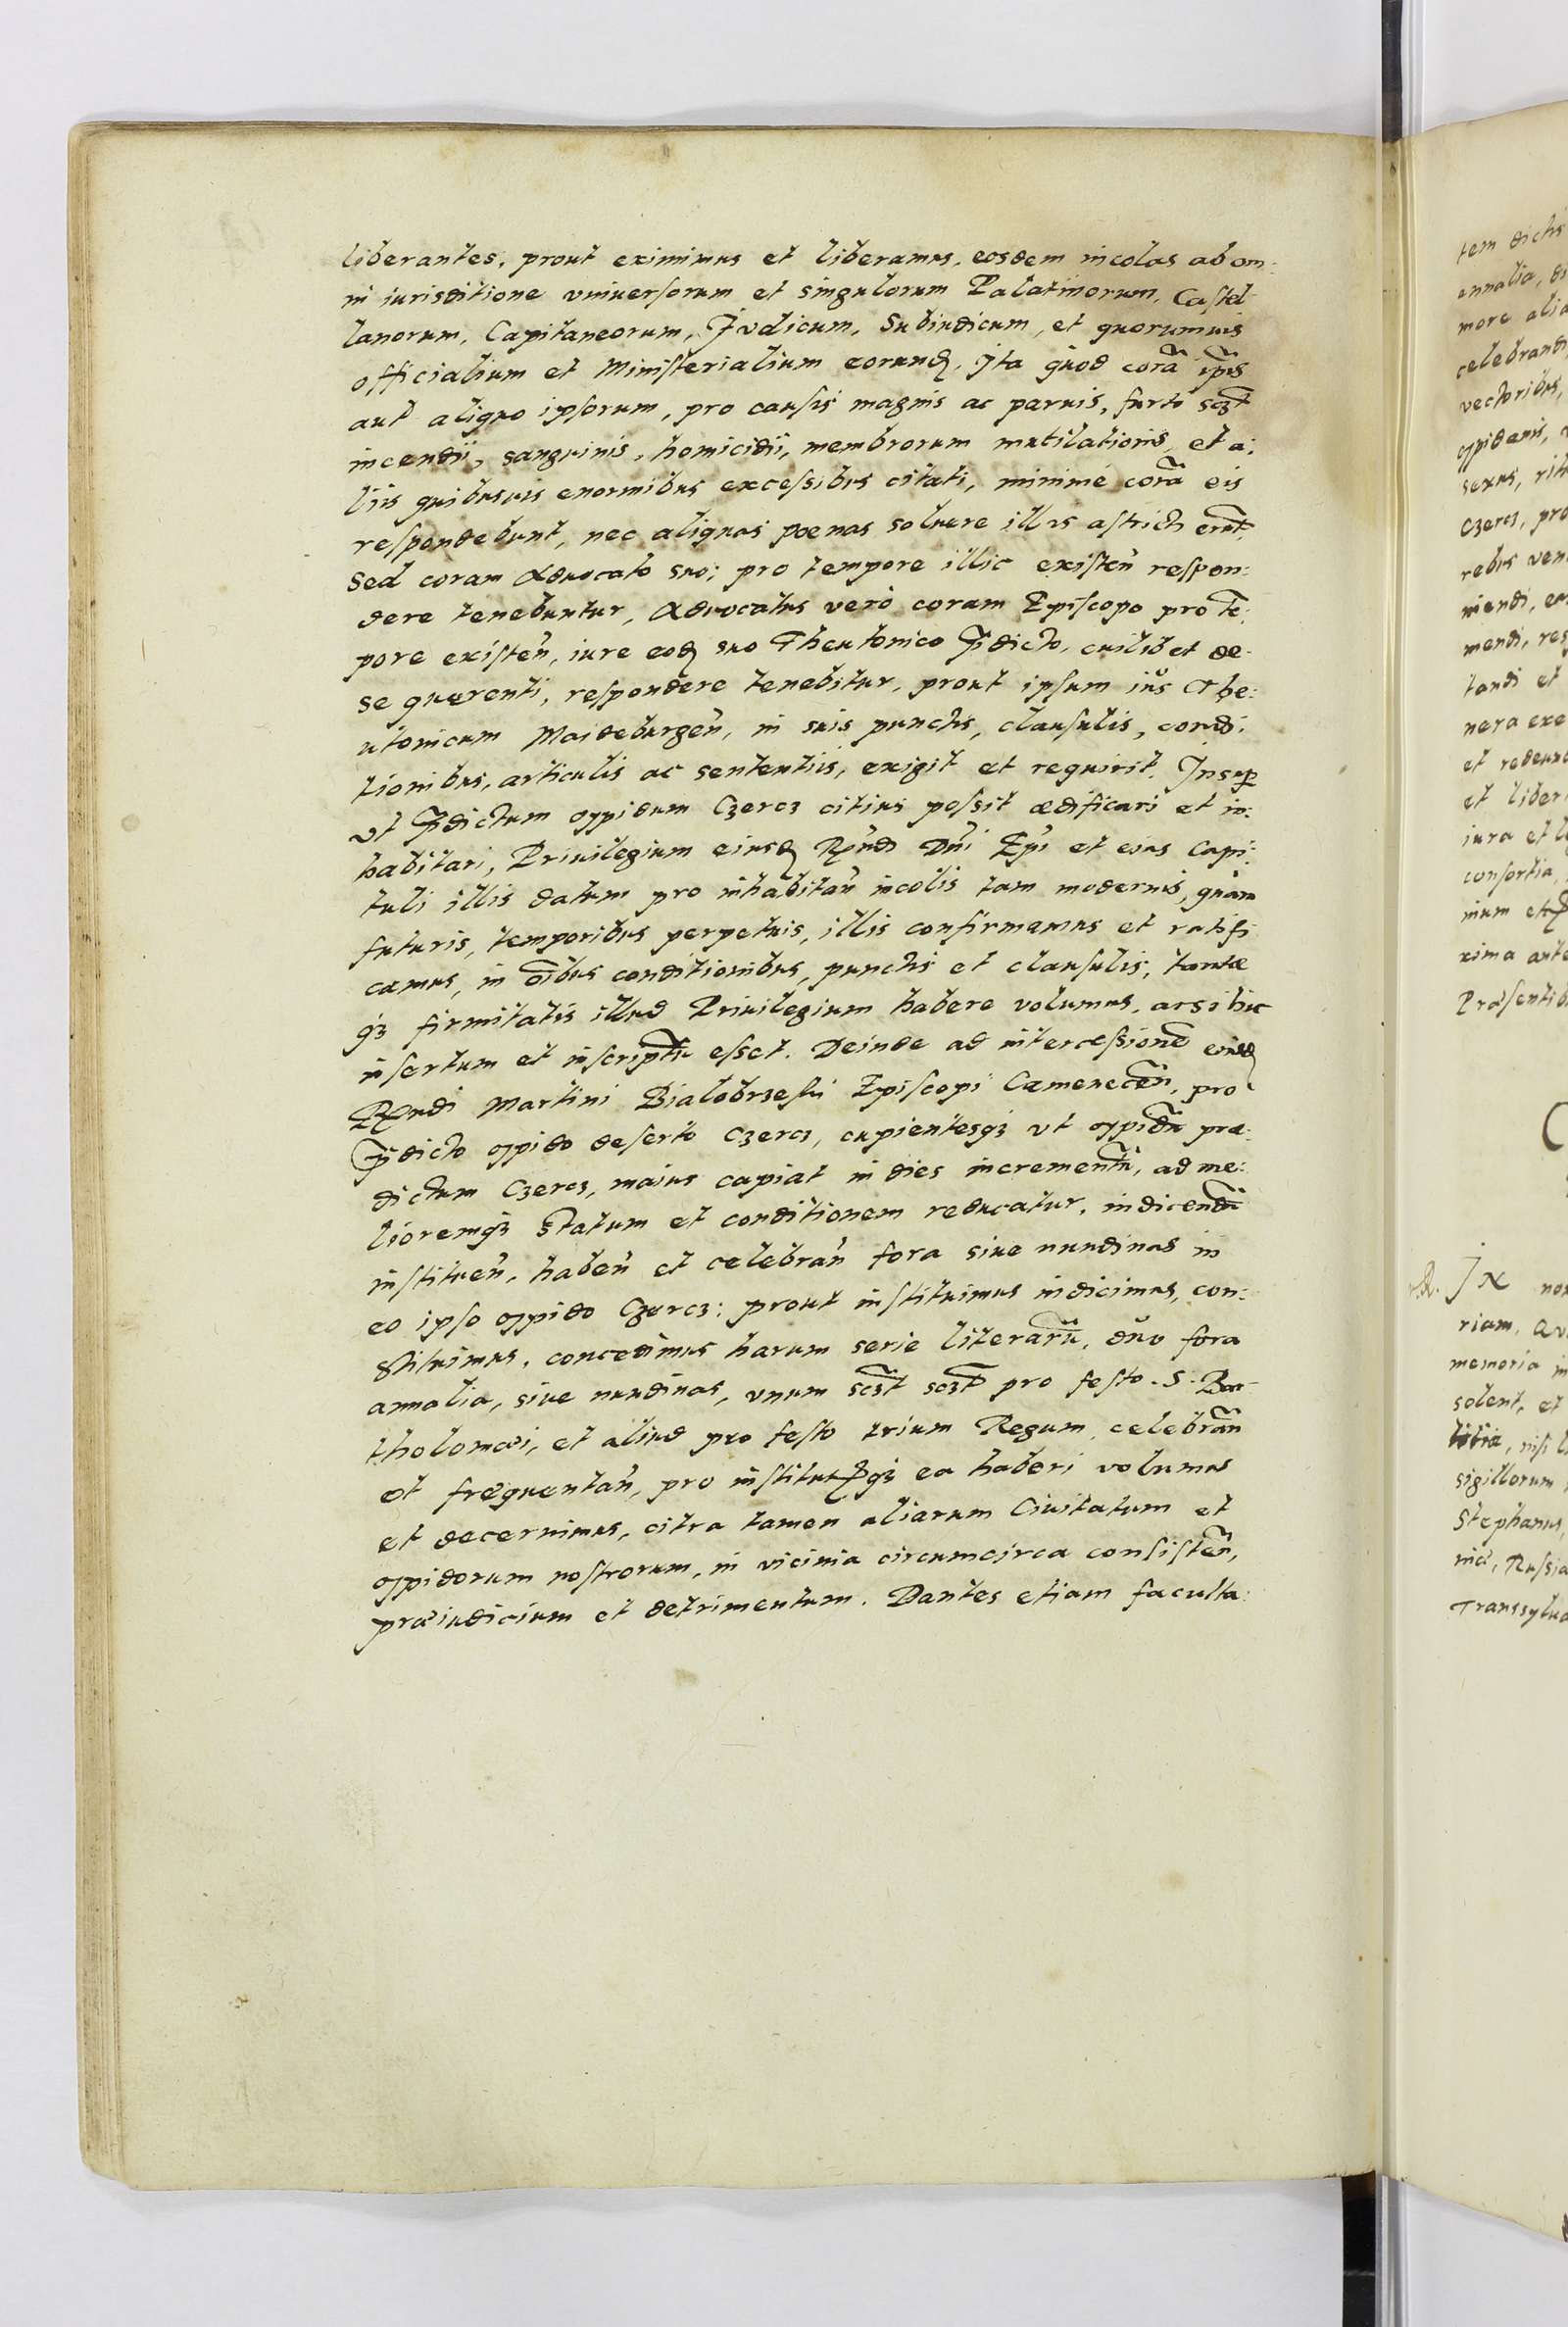 liberantes, prout eximimus et liberamus, eosdem incolas ab om:
ni iurisditione vniuersorum et singulorum Palatinorum, Castel-
lanorum, Capitaneorum, Judicum, Subiudicum, et quorumuis
officialium et Ministerialium eorund, Ita quod corã ipĩs
aut aliquo ipsorum, pro causis magnis ac paruis, furto sczt
incendii, sanguinis, homicidii, membrorum mutilationis, et a:
liis quibusuis enormibus excessibus citati, minimé corã eis
respondebunt, nec aliquas poenas soluere illis astricti erũt,
Sed coram Aduocato suo; pro tempore illic existeñ respon:
dere tenebuntur, Aduocatus verò coram Episcopo pro tẽ:
pore existeñ, iure eod suo Theutonico p̃dicto, cuilibet de-
se querenti, respondere tenebitur, prout ipsum iŭs The:
utonicum Maideburgeñ, in suis punctis, clausulis, condi:
tionibus, articulis ac sententiis, exigit et requirit. Insup
vt p̃dictum oppidum Czercz citius possit ædificari et in:
habitari, Priuilegium eiusd Rñdi Dñi Epĩ et eius Capi:
tuli illis datum pro inhabitañ incolis tam modernis, quàm
futuris, temporibus perpetuis, illis confirmamus et ratifi
camus, in oĩbus conditionibus, punctis et clausulis, tantæ
q3 firmitatis illud Priuilegium habere volumus, ac si hic
insertum et inscriptũ esset. Deinde ad intercessionẽ eiusd
Rñdi Martini Bialobrzeski Episcopi Cameneceñ, pro
p̃dicto oppido deserto Czercz, cupientesq3 vt oppidũ præ:
dictum Czercz, maius capiat in dies incrementũ, ad me:
lioremq3 Statum et conditionem reducatur, indicendi
institueñ, habeñ et celebrañ fora siue nundinas in
eo ipso oppido Czercz: prout instituimus indicimus, con:
stituimus, concedimus harum serie literarũ, dŭo fora
annalia, siue nundinas, vnum sczt sczt pro festo S. Bar-
tholomæi, et aliud pro festo trium Regum, celebrañ
et fræquentañ, pro institutisq3 ea haberi volumus
et decernimus, citra tamen aliarum Ciuitatum et
oppidorum nostrorum, in vicinia circumcirca consisteñ,
præiudicium et detrimentum. Dantes etiam faculta:
tem dictis
annalia, di
more alia
celebrandi
vectoribus,
oppidanis,
sexus, rit
Czercz, pro
rebus ven
niendi, em
mendi, res
tandi et
nera exe
et redeund
et liber
iura et l
consortia,
nium et
xima ante
Præsentib
C
IN nom
riam, Qu
memoria in
solent, et
nisi l
sigillorum
Stephanus,
niæ, Russia
Transsylua